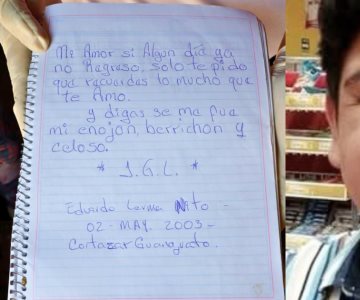 Mi Amor si Algun dia ya
no Regreso, solo te pido
que recuerdes lo mucho que
te Amo.
y digas se me fue
mi enojon, berrichon y
celoso.
* J.G.L. *
Eduardo Lerma Nito -
02 - MAY. 2003 -
Cortazar Guanajuato.